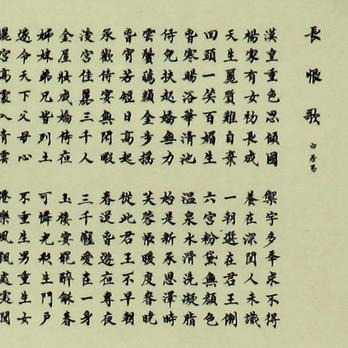 長恨歌
白居易
漢皇重色思傾國 禦宇多年求不得
楊家有女初長成 養在深閨人未識
天生麗質難自棄 一朝選在君王側
回頭一笑百媚生 六宮粉黛無顏色
春寒賜浴華清池 溫泉水滑洗凝脂
侍兒扶起嬌無力 始是新承恩澤時
雲鬢花顏金步搖 芙蓉帳暖度春宵
春宵苦短日高起 從此君王不早朝
承歡侍宴無閒暇 春從春遊夜專夜
後宮佳麗三千人 三千寵愛在一身
金屋妝成嬌侍夜 玉樓宴罷醉龢春
姊妹弟兄皆列土 可憐光彩生門戶
遂令天下父母心 不重生男重生女
驪宮高處入青雲 樂風飄處處聞